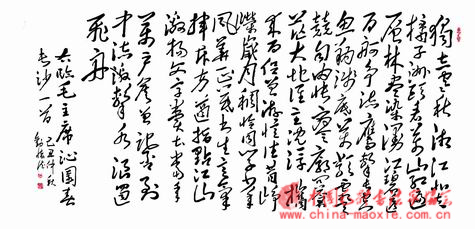 独立寒秋湘江北去
橘子洲头看万山红遍
层林尽染漫江碧透
百舸争流鹰击长空
鱼翔浅底万类霜天
竞自由怅寥廓问苍
茫大地谁主沉浮携
来百侣曾游忆往昔峥
嵘岁月稠恰同学少年
风华正茂书生意气
挥斥方遒指点江山
激扬文字粪土当年
万户侯曾记否到
中流击水浪遏
飞舟
毛主席沁园春
长沙一首
己丑仲秋
www.china-maoxie.com